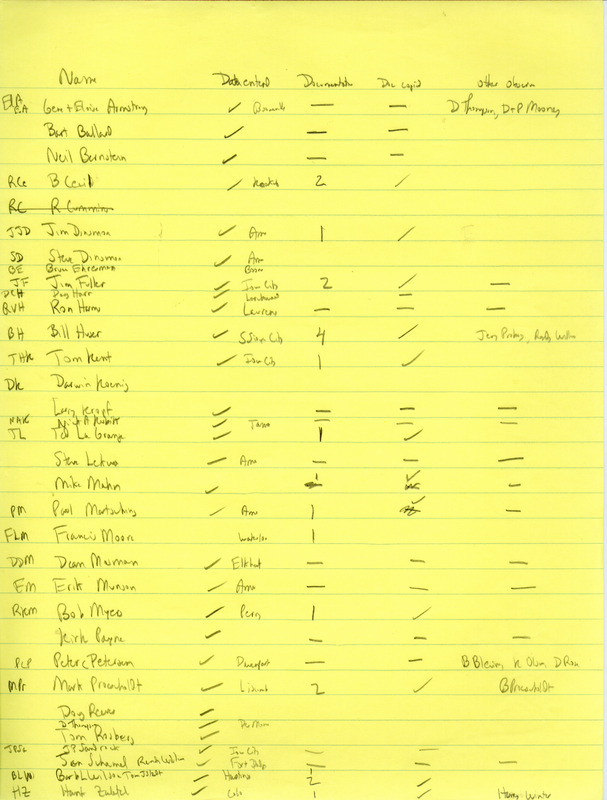 Name Data enterd Documentation Doc copied other observers
EIA EA Gene + Eloise Armstrong ✓ — — D Thompson, D+P Mooney
Bart Ballard ✓ — —
Neil Bernstein ✓ — —
RCe B Cecil ✓ 2 ✓
RC R Cummins
JJD Jim Dinsmore ✓ Ames 1 ✓
SD Steve Dinsmore ✓ Ames
BE Bruce Ehresman Boone
JF Jim Fuller ✓ Iowa City 2 ✓ —
DCH Doug Harr ✓ —
RVH Ron Harms ✓ Laurens — — —
BH Bill Huser ✓ S Sioux City 4 ✓
THK Tom Kent ✓ Iowa City 1 ✓
DK Darwin Koenig
Larry Kropf ✓ — — —
✓ Tama — — —
TL Tod La Grange ✓ 1 ✓
Steve Lekwa ✓ Ames — — —
Mike Mahn ✓ 1 ✓ —
PM Paul Martsching ✓ Ames 1 ✓ —
FLM Francis Moore Waterloo 1
DDM Dean Mosman ✓ Elkhart — — —
EM Erik Munson ✓ Ames — — —
RKM Bob Myers ✓ Perry 1 ✓
Kirk Payne ✓ — — —
PCP Peter C Petersen ✓ Davenport — — B Blevins, K Olson,
MPr Mark Proescholdt ✓ Liscomb 2 ✓ B Proescholdt
Doug Reeves ✓
D Thompson ✓ Des Moines
Tom Rosburg ✓
JPSa JP Sandrock ✓ Iowa City — —
✓ Fort Dodge — — —
BLW Barb L Wilson ✓ Hastings 2 ✓
HZ Hank Zaletel ✓ Colo 1 ✓